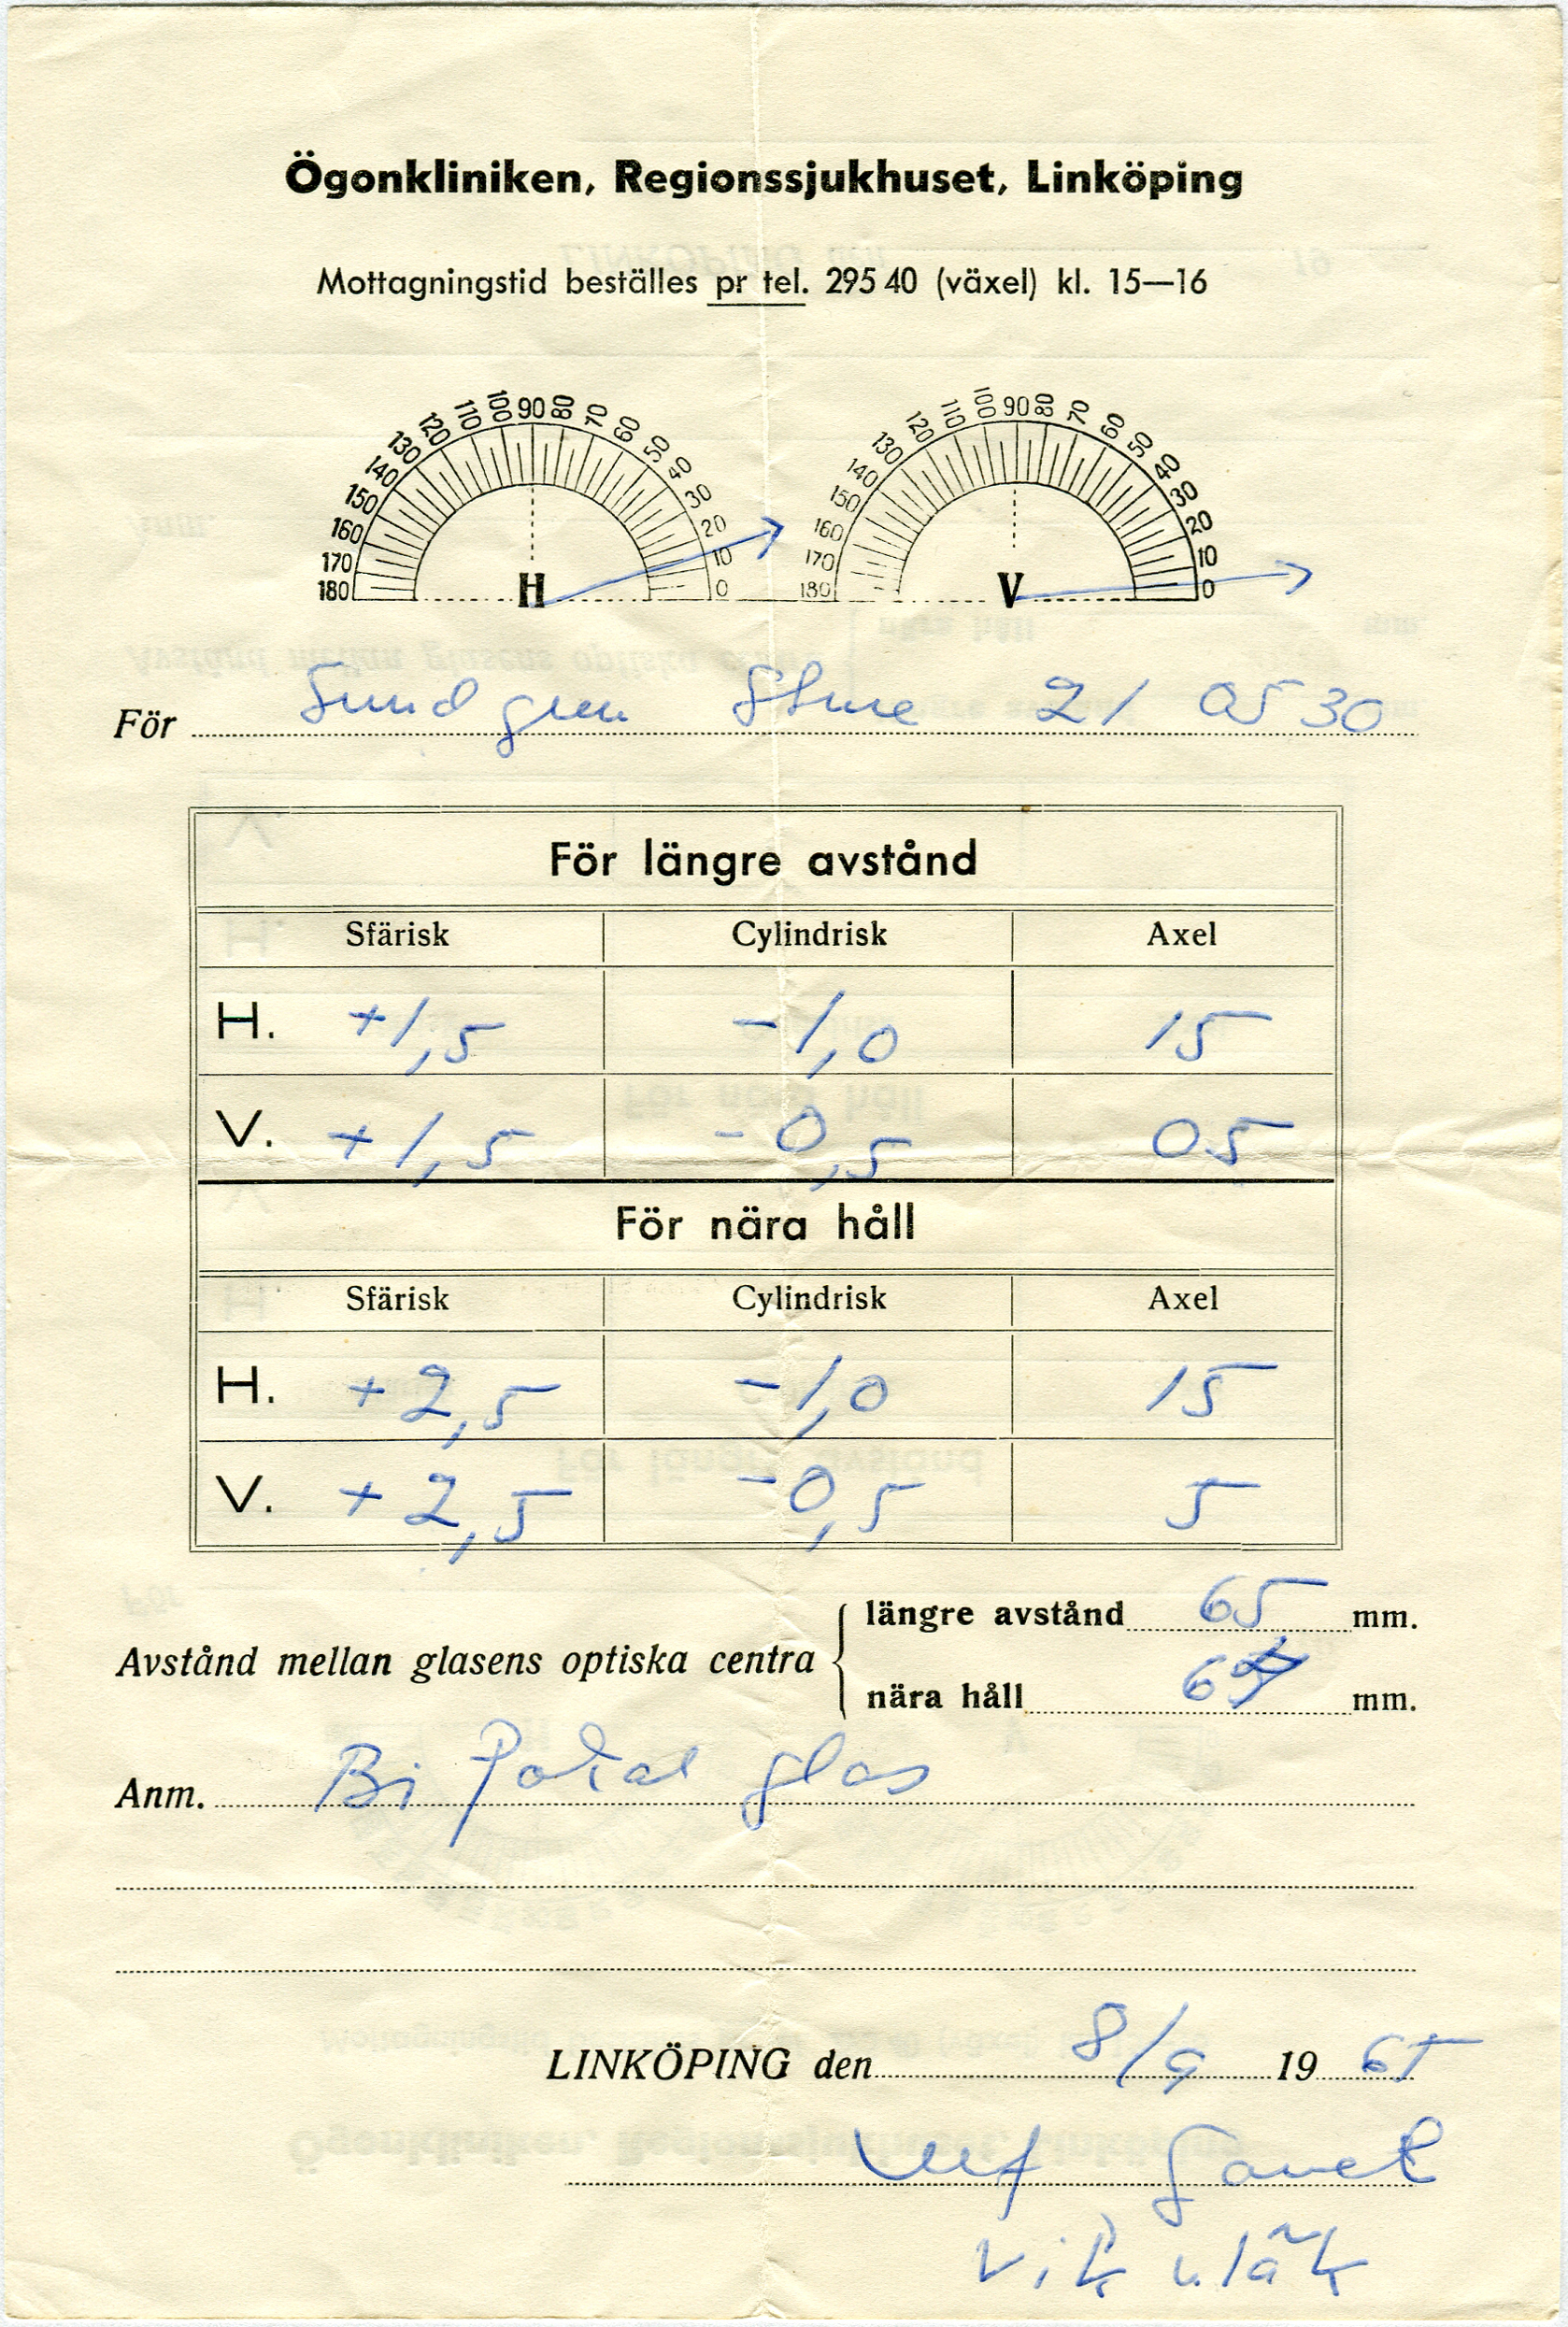 Ögonkliniken, Regionssjukhuset, Linköping
Mottagningstid beställes pr tel. 295 40 (växel) kl. 15—16
180 170 160 150 140 130 120 110 100 90 80 70 60 50 40 30 20 10 0
H
180 170 160 150 140 130 120 110 100 90 80 70 60 50 40 30 20 10 0
V
För Sundgren Sture 21 05 30
För längre avstånd
Sfärisk Cylindrisk Axel
H. +1,5 -1,0 15
V. +1,5 -0,5 05
För nära håll
Sfärisk Cylindrisk Axel
H. +2,5 -1,0 15
V. +2,5 -0,5 5
Avstånd mellan glasens optiska centra
längre avstånd 65 mm.
nära håll mm.
Anm. Bi fokal glas
LINKÖPING den 8/9 1965
Ulf
vik uläk